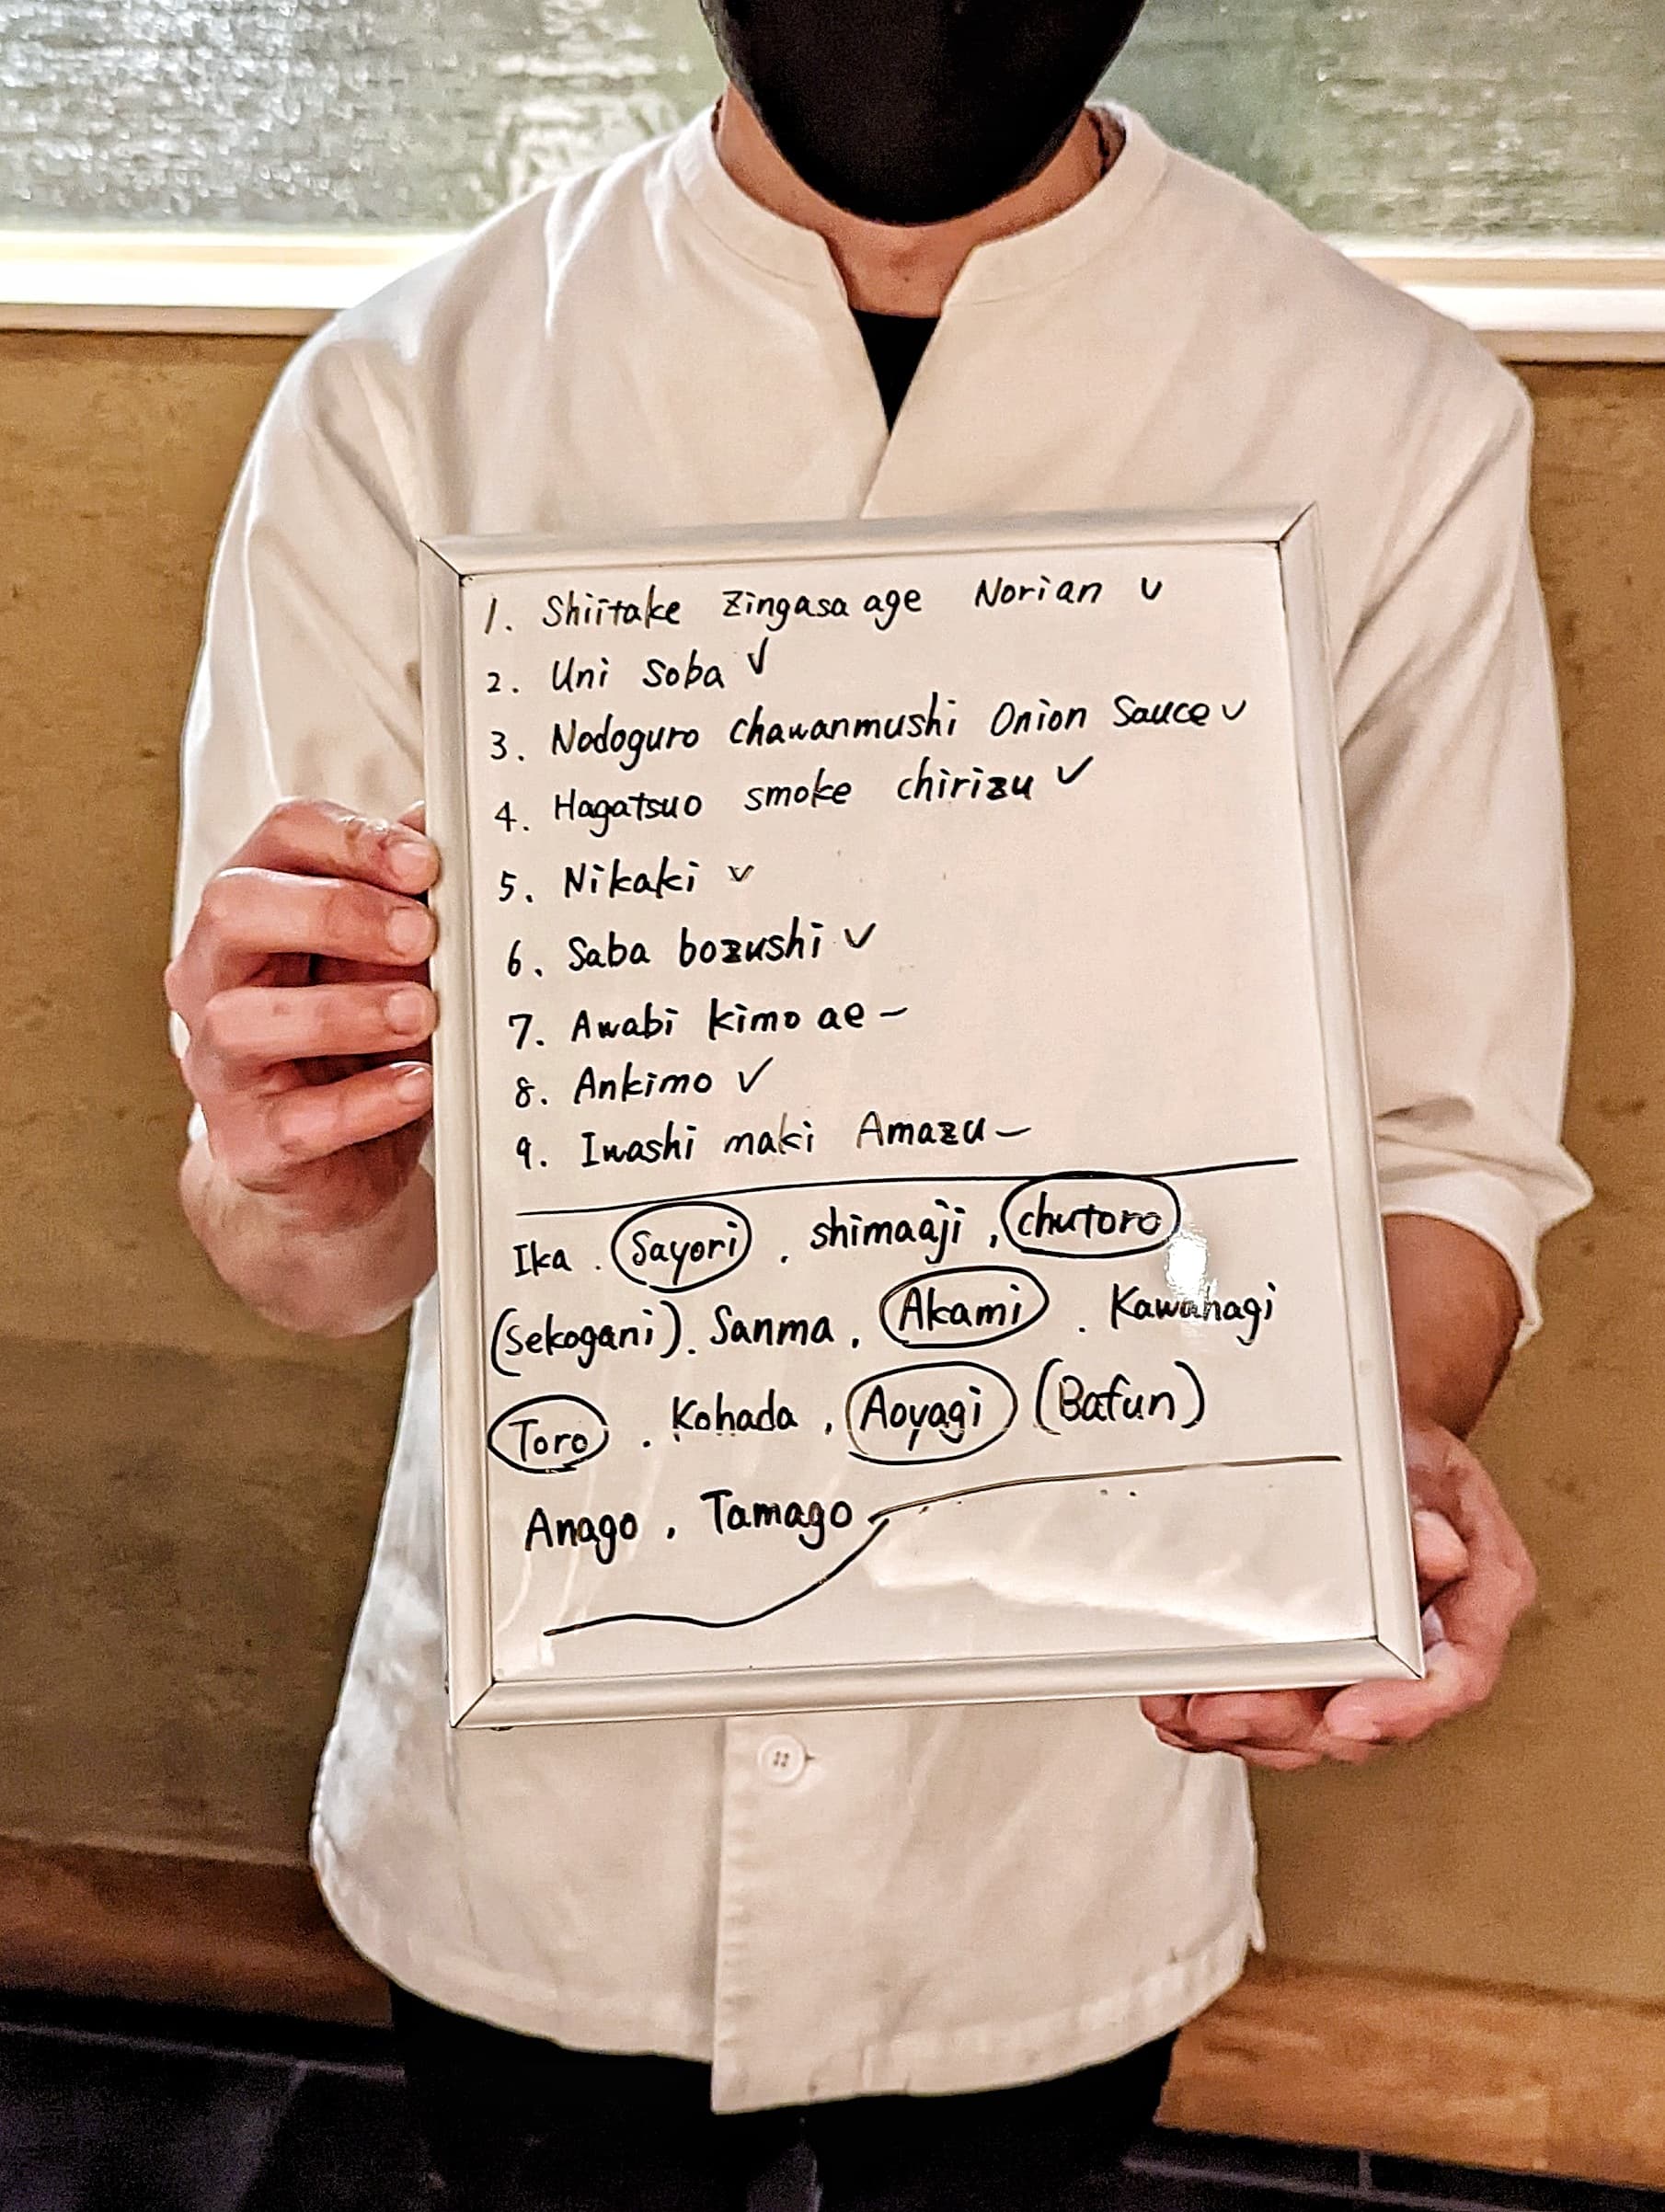 1. Shiitake Zingasa age Norian ✓
2. Uni Soba ✓
3. Nodoguro chawanmushi Onion Sauce ✓
4. Hagatsuo smoke chirizu ✓
5. Nikaki ✓
6. Saba bozushi ✓
7. Awabi kimo ae –
8. Ankimo ✓
9. Iwashi maki Amazu –
Ika . Sayori . shimaaji , chutoro
(Sekogani). Sanma , Akami . Kawahagi
Toro . Kohada , Aoyagi (Bafun)
Anago , Tamago